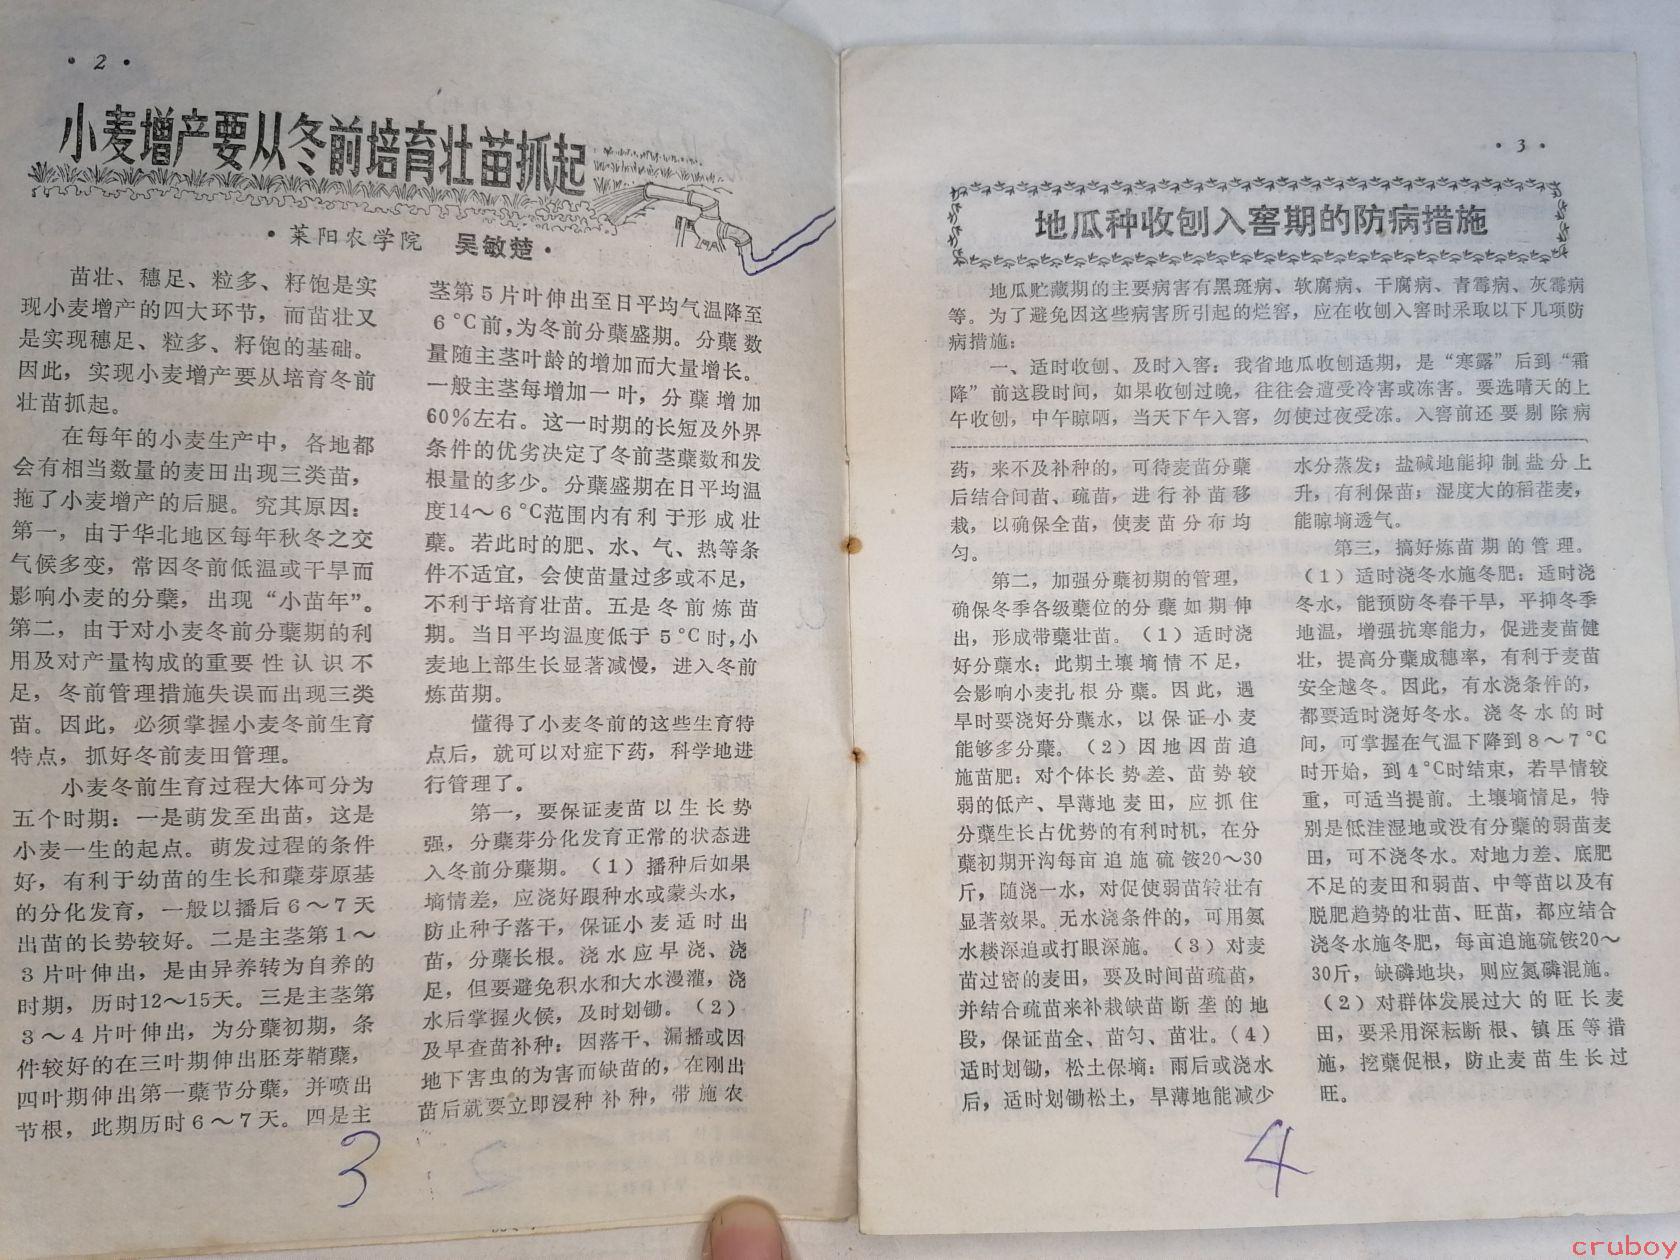 · 2 ·
小麦增产要从冬前培育壮苗抓起
· 莱阳农学院 吴敏楚 ·
苗壮、穗足、粒多、籽饱是实
现小麦增产的四大环节，而苗壮又
是实现穗足、粒多、籽饱的基础。
因此，实现小麦增产要从培育冬前
壮苗抓起。
在每年的小麦生产中，各地都
会有相当数量的麦田出现三类苗，
拖了小麦增产的后腿。究其原因：
第一，由于华北地区每年秋冬之交
气候多变，常因冬前低温或干旱而
影响小麦的分蘖，出现“小苗年”。
第二，由于对小麦冬前分蘖期的利
用及对产量构成的重要性认识不
足，冬前管理措施失误而出现三类
苗。因此，必须掌握小麦冬前生育
特点，抓好冬前麦田管理。
小麦冬前生育过程大体可分为
五个时期：一是萌发至出苗，这是
小麦一生的起点。萌发过程的条件
好，有利于幼苗的生长和蘖芽原基
的分化发育，一般以播后6～7天
出苗的长势较好。二是主茎第1～
3片叶伸出，是由异养转为自养的
时期，历时12～15天。三是主茎第
3～4片叶伸出，为分蘖初期，条
件较好的在三叶期伸出胚芽鞘蘖，
四叶期伸出第一蘖节分蘖，并喷出
节根，此期历时6～7天。四是主
茎第5片叶伸出至日平均气温降至
6℃前，为冬前分蘖盛期。分蘖数
量随主茎叶龄的增加而大量增长。
一般主茎每增加一叶，分蘖增加
60%左右。这一时期的长短及外界
条件的优劣决定了冬前茎蘖数和发
根量的多少。分蘖盛期在日平均温
度14～6℃范围内有利于形成壮
蘖。若此时的肥、水、气、热等条
件不适宜，会使苗量过多或不足，
不利于培育壮苗。五是冬前炼苗
期。当日平均温度低于5℃时，小
麦地上部生长显著减慢，进入冬前
炼苗期。
懂得了小麦冬前的这些生育特
点后，就可以对症下药，科学地进
行管理了。
第一，要保证麦苗以生长势
强，分蘖芽分化发育正常的状态进
入冬前分蘖期。（1）播种后如果
墒情差，应浇好跟种水或蒙头水，
防止种子落干，保证小麦适时出
苗，分蘖长根。浇水应早浇、浇
足，但要避免积水和大水漫灌，浇
水后掌握火候，及时划锄。（2）
及早查苗补种：因落干、漏播或因
地下害虫的为害而缺苗的，在刚出
苗后就要立即浸种补种，带施农
3
· 3 ·
地瓜种收刨入窖期的防病措施
地瓜贮藏期的主要病害有黑斑病、软腐病、干腐病、青霉病、灰霉病
等。为了避免因这些病害所引起的烂窖，应在收刨入窖时采取以下几项防
病措施：
一、适时收刨、及时入窖：我省地瓜收刨适期，是“寒露”后到“霜
降”前这段时间，如果收刨过晚，往往会遭受冷害或冻害。要选晴天的上
午收刨，中午晾晒，当天下午入窖，勿使过夜受冻。入窖前还要剔除病
药，来不及补种的，可待麦苗分蘖
后结合间苗、疏苗，进行补苗移
栽，以确保全苗，使麦苗分布均
匀。
第二，加强分蘖初期的管理，
确保冬季各级蘖位的分蘖如期伸
出，形成带蘖壮苗。（1）适时浇
好分蘖水：此期土壤墒情不足，
会影响小麦扎根分蘖。因此，遇
旱时要浇好分蘖水，以保证小麦
能够多分蘖。（2）因地因苗追
施苗肥：对个体长势差、苗势较
弱的低产、旱薄地麦田，应抓住
分蘖生长占优势的有利时机，在分
蘖初期开沟每亩追施硫铵20～30
斤，随浇一水，对促使弱苗转壮有
显著效果。无水浇条件的，可用氨
水耧深追或打眼深施。（3）对麦
苗过密的麦田，要及时间苗疏苗，
并结合疏苗来补栽缺苗断垄的地
段，保证苗全、苗匀、苗壮。（4）
适时划锄，松土保墒：雨后或浇水
后，适时划锄松土，旱薄地能减少
水分蒸发；盐碱地能抑制盐分上
升，有利保苗；湿度大的稻茬麦，
能晾墒透气。
第三，搞好炼苗期的管理。
（1）适时浇冬水施冬肥：适时浇
冬水，能预防冬春干旱，平抑冬季
地温，增强抗寒能力，促进麦苗健
壮，提高分蘖成穗率，有利于麦苗
安全越冬。因此，有水浇条件的，
都要适时浇好冬水。浇冬水的时
间，可掌握在气温下降到8～7℃
时开始，到4℃时结束，若旱情较
重，可适当提前。土壤墒情足，特
别是低洼湿地或没有分蘖的弱苗麦
田，可不浇冬水。对地力差、底肥
不足的麦田和弱苗、中等苗以及有
脱肥趋势的壮苗、旺苗，都应结合
浇冬水施冬肥，每亩追施硫铵20～
30斤，缺磷地块，则应氮磷混施。
（2）对群体发展过大的旺长麦
田，要采用深耘断根、镇压等措
施，挖蘖促根，防止麦苗生长过
旺。
4
cruboy